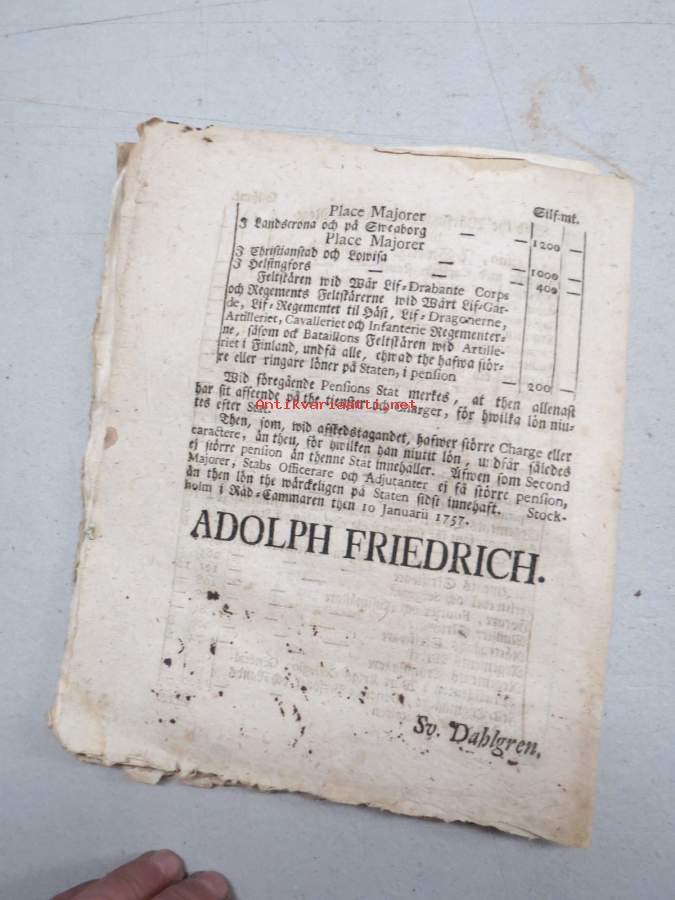 Silf:mt.
Place Majorer
J Landscrona och på Sweaborg — — 1200 —
Place Majorer
J Christianstad och Lowisa — — 1000 —
J Helsingfors — — — 400 —
Feltskären wid Wår Lif-Drabante Corps
och Regements Feltskärerne wid Wårt Lif-Gar-
de, Lif-Regementet til Häst, Lif-Dragonerne,
Artilleriet, Cavalleriet och Infanterie Regementer-
ne, såsom ock Bataillons Feltskären wid Artille-
riet i Finland, undfå alle, ehwad the hafwa stör-
re eller ringare löner på Staten, i pension — 200 —
Wid föregående Pensions Stat merkes, at then allenast
har sit afseende på the tjenster och Charger, för hwilka lön niu-
tes efter Stat.
Then, som, wid afskedstagandet, hafwer större Charge eller
caractere, än then, för hwilken han niutit lön, undfår således
ej större pension än thenne Stat innehåller. Äfwen som Second
Majorer, Stabs Officerare och Adjutanter ej få större pension,
än then lön the wärckeligen på Staten sidst innehaft. Stock-
holm i Råd-Cammaren then 10 Januarii 1757.
ADOLPH FRIEDRICH.
Sv. Dahlgren.
Antikvariaatti.net